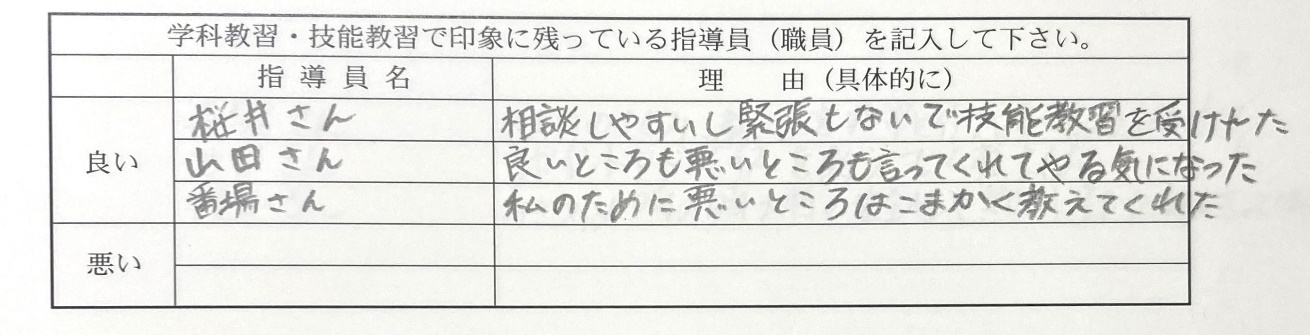 学科教習・技能教習で印象に残っている指導員（職員）を記入して下さい。
指導員名 理由（具体的に）
良い
桜井さん 相談しやすいし緊張もしないで技能教習を受けれた
山田さん 良いところも悪いところも言ってくれてやる気になった
番場さん 私のために悪いところはこまかく教えてくれた
悪い